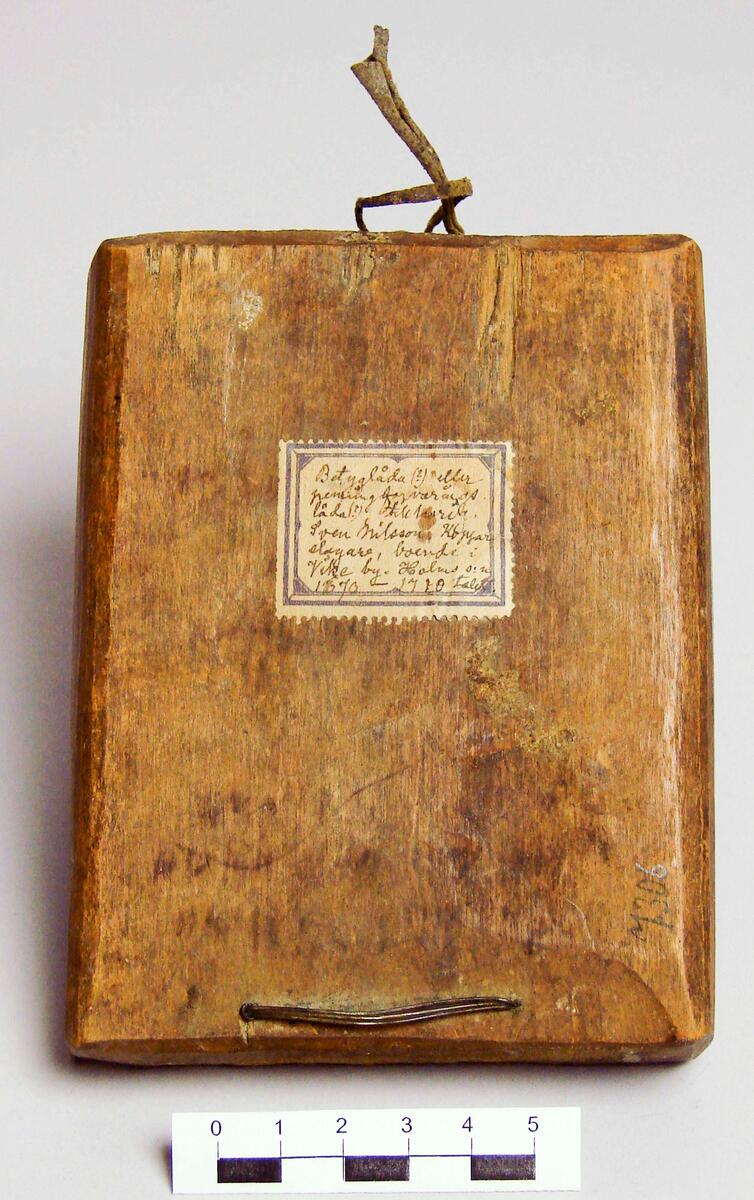 Betyglåda (?) eller
penningförvarings-
låda(?)
Sven Nilsson, Koppar
slagare, boende i
Vike by. Holms s:n
1670 - 1710 talet
7306
0 1 2 3 4 5